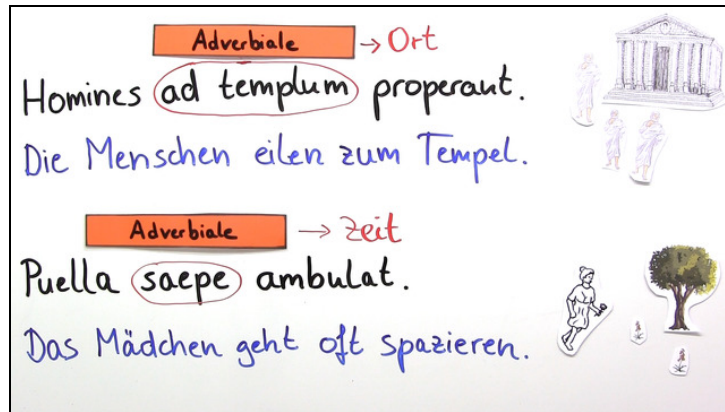 Adverbiale → Ort
Homines ad templum properant.
Die Menschen eilen zum Tempel.
Adverbiale → Zeit
Puella saepe ambulat.
Das Mädchen geht oft spazieren.